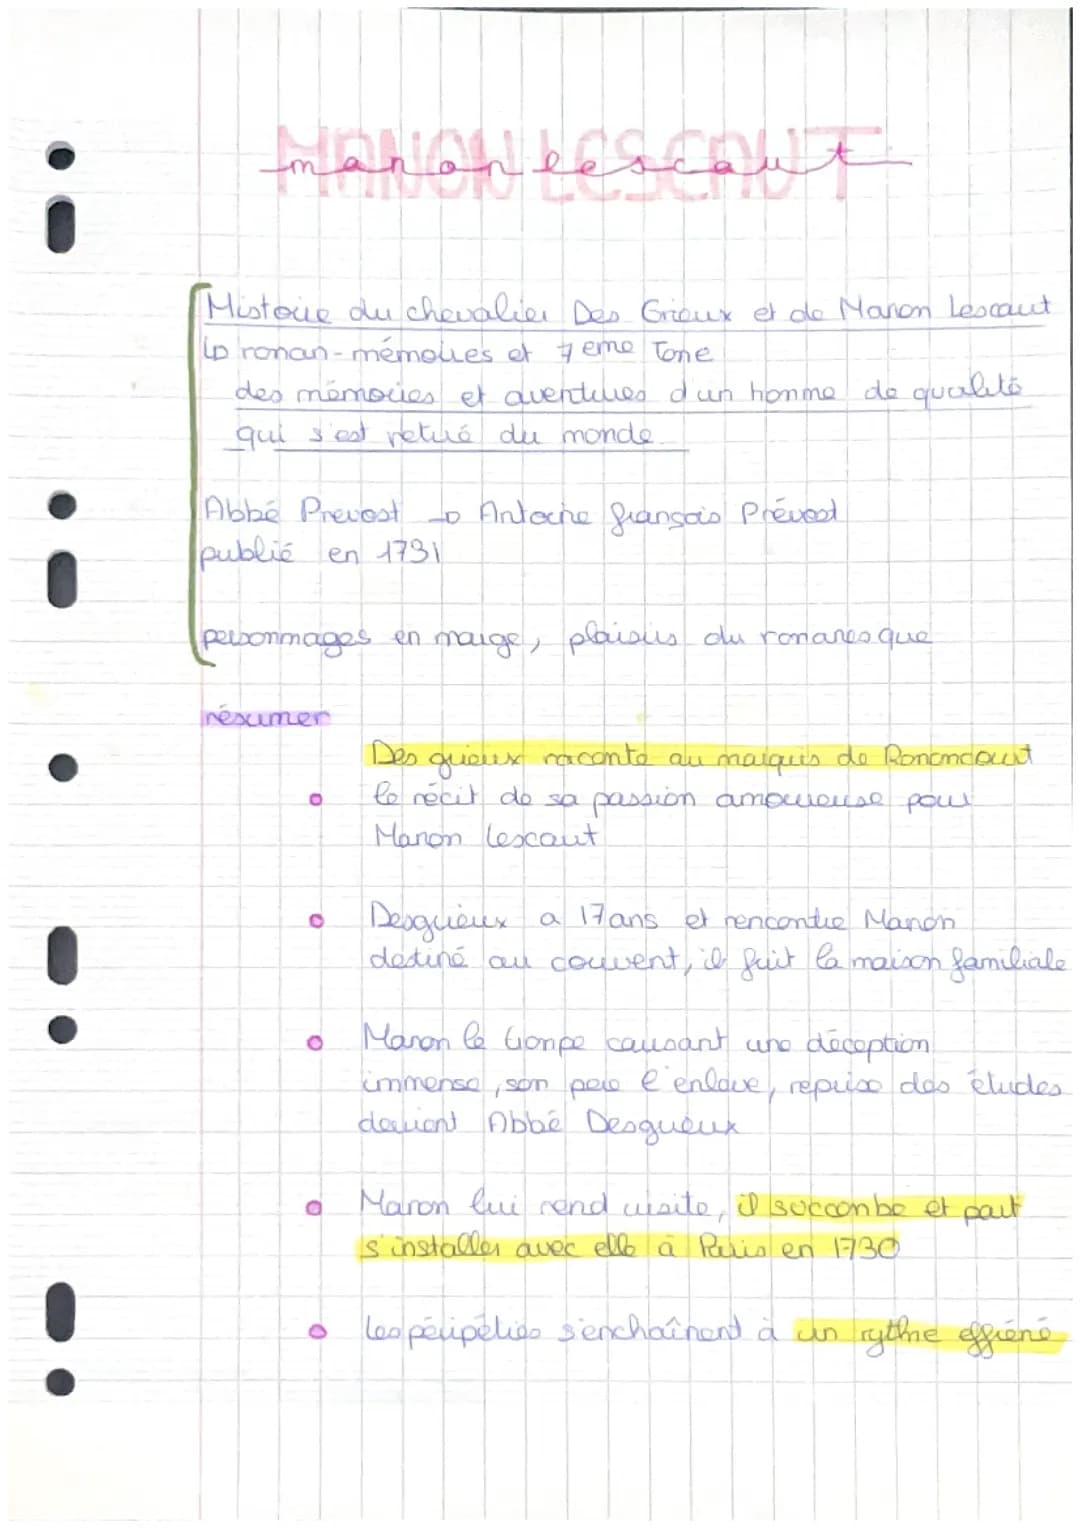 MANON LESCAUT
manon lescaut
Histoire du chevalier Des Grieux et de Manon Lescaut
↳ roman-mémoires et 7eme Tome
des mémoires et aventures d'un homme de qualité
qui s'est retiré du monde
Abbé Prevost → Antoine françois Prévost
publié en 1731
personnages en marge, plaisirs du romanesque
résumer
Des grieux raconte au marquis de Renoncourt
le récit de sa passion amoureuse pour
Manon Lescaut
Desgrieux a 17 ans et rencontre Manon
destiné au couvent, il fuit la maison familiale
Manon le trompe causant une déception
immense, son père l'enlève, reprise des études
devient Abbé Desgrieux
Manon lui rend visite, il succombe et part
s'installer avec elle à Paris en 1730
les péripéties s'enchaînent à un rythme effréné